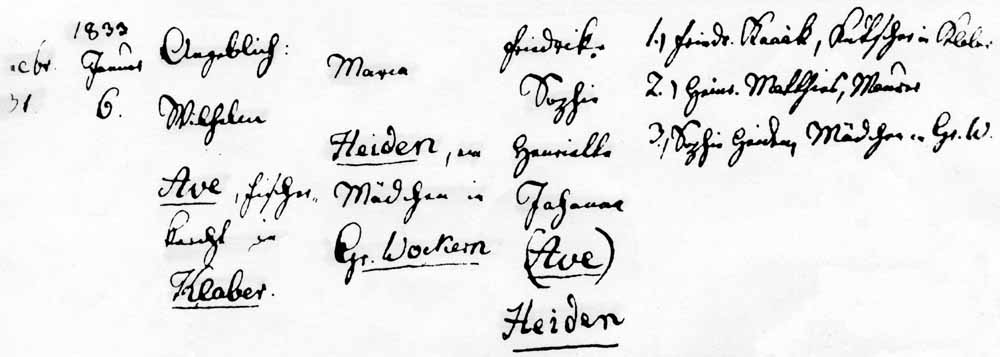 1833
Januar
6.
Angeblich:
Wilhelm
Ave, Fischer-
knecht in
Klaber.
Maria
Heiden, ein
Mädchen in
Gr. Wockern
Friedrike
Sophie
Henriette
Johanna
(Ave)
Heiden
1.) Friedr. Kaack, Kutscher in Klaber
2.) Heinr. Matthies, Maurer
3.) Sophie Heiden, Mädchen in Gr. W.